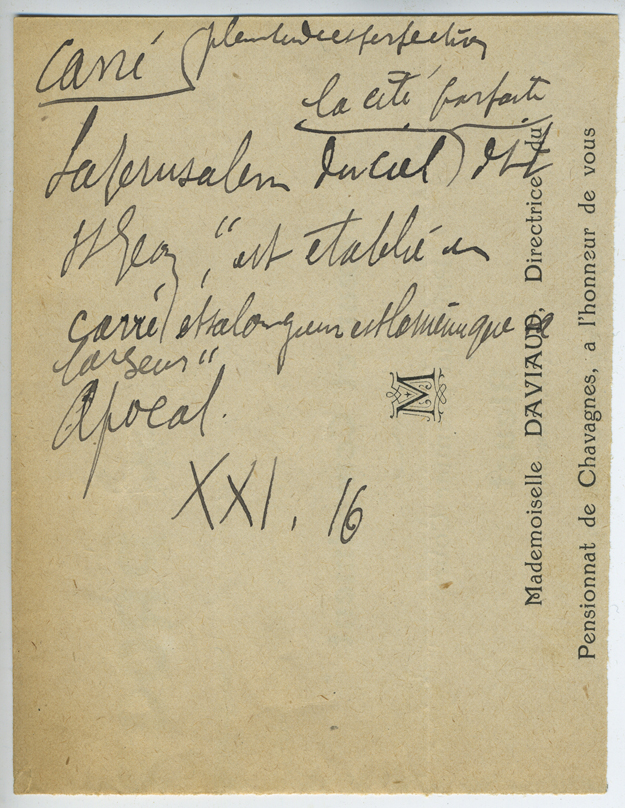 carré plénitude et perfection
la cité parfaite
La Jerusalem du ciel, dit
St Jean, "est établie en
carré et sa longueur est la même que sa
largeur"
Apocal.
XXI, 16
M
Mademoiselle DAVIAUD, Directrice du
Pensionnat de Chavagnes, a l'honneur de vous